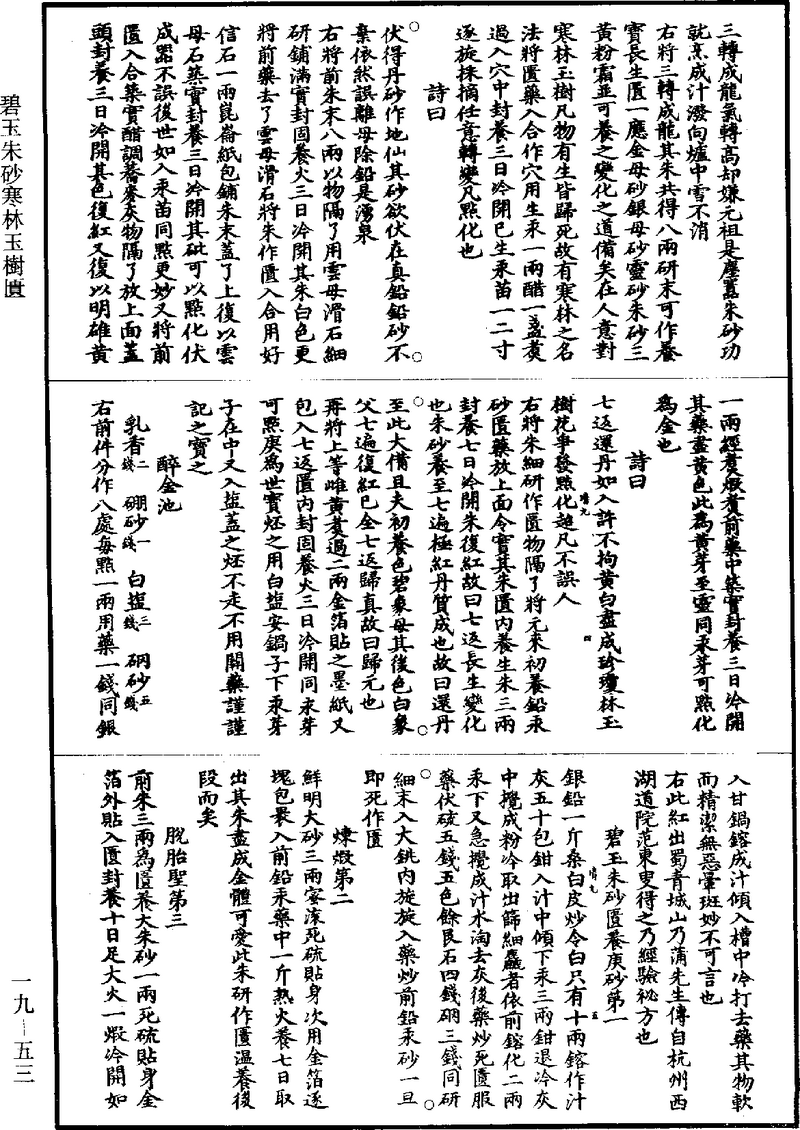 碧玉朱砂寒林玉樹匱
三轉成龍氣轉高却嫌元祖是塵囂朱砂功
就烹成汁潑向爐中雪不消
右將三轉成龍其朱共得八兩研末可作養
寶長生匱一應金母砂銀母砂靈砂朱砂三
黃粉霜並可養之變化之道備矣在人意對
寒林玉樹凡物有生皆歸死故有寒林之名
法將匱藥入合作穴用生汞一兩醋一盞煑
過入穴中封養三日冷開已生汞苗一二寸
逐旋抹摘任意轉變凡點化也
詩曰
伏得丹砂作地仙其砂欲伏在真鉛鉛砂不
棄依然誤離母除鉛是湧泉
右將前朱末八兩以物隔了用雲母滑石細
研鋪滿實封固養火三日冷開其朱白色更
將前藥去了雲母滑石將朱作匱入合用好
信石一兩崑崙紙包鋪朱末蓋了上復以雲
母石蓋實封養三日冷開其砒可以點化伏
成器不誤後世如入汞苗同點更妙又將前
匱入合築實醋調蕎麥灰物隔了放上面蓋
頭封養三日冷開其色復紅又復以明雄黃
一兩經煑煅煑前藥中築實封養三日冷開
其藥盡黃色此爲黃芽至靈同汞芽可點化
爲金也
詩曰
七返還丹如入許不拘黃白盡成珍瓊林玉
樹花爭發點化超凡不誤人
右將朱細研作匱物隔了將元來初養鉛汞
砂匱藥放上面令實其朱匱內養生朱三兩
封養七日冷開朱復紅故曰七返長生變化
也朱砂養至七遍極紅丹質成也故曰還丹
至此大備且夫初養色碧象母其後色白象
父七遍復紅已全七返歸真故曰歸元也
再將上等雌黃煑過二兩金箔貼之墨紙又
包入七返匱內封固養火三日冷開同汞芽
可點庚爲世寶烓之用白塩安鍋子下汞芽
子在中又入塩蓋之烓不走不用關藥謹謹
記之寶之
醉金池
乳香二錢 硼砂一錢 白塩三錢 硇砂五錢
右前件分作八處每點一兩用藥一錢同銀
入甘鍋鎔成汁傾入槽中冷打去藥其物軟
而精潔無惡暈斑妙不可言也
右此紅出蜀青城山乃蒲先生傳自杭州西
湖道院范東叟得之乃經驗祕方也
碧玉朱砂匱養庚砂第一
銀鉛一斤桑白皮炒令白只有十兩鎔作汁
灰五十包鉗入汁中傾下汞三兩鉗退冷灰
中攪成粉冷取出篩細麤者依前鎔化二兩
汞下又急攪成汁水淘去灰後藥炒死匱服
藥伏硫五錢五色餘艮石四錢硇三錢同研
細末入大銚內旋旋入藥炒前鉛汞砂一旦
即死作匱
煉煅第二
鮮明大砂三兩宻滾死硫貼身次用金箔逐
塊包褁入前鉛汞藥中一斤熟火養七日取
出其朱盡成金體可愛此朱研作匱溫養後
段而矣
脫胎聖第三
前朱三兩爲匱養大朱砂一兩死硫貼身金
箔外貼入匱封養十日足大火一煅冷開如
一九–五三